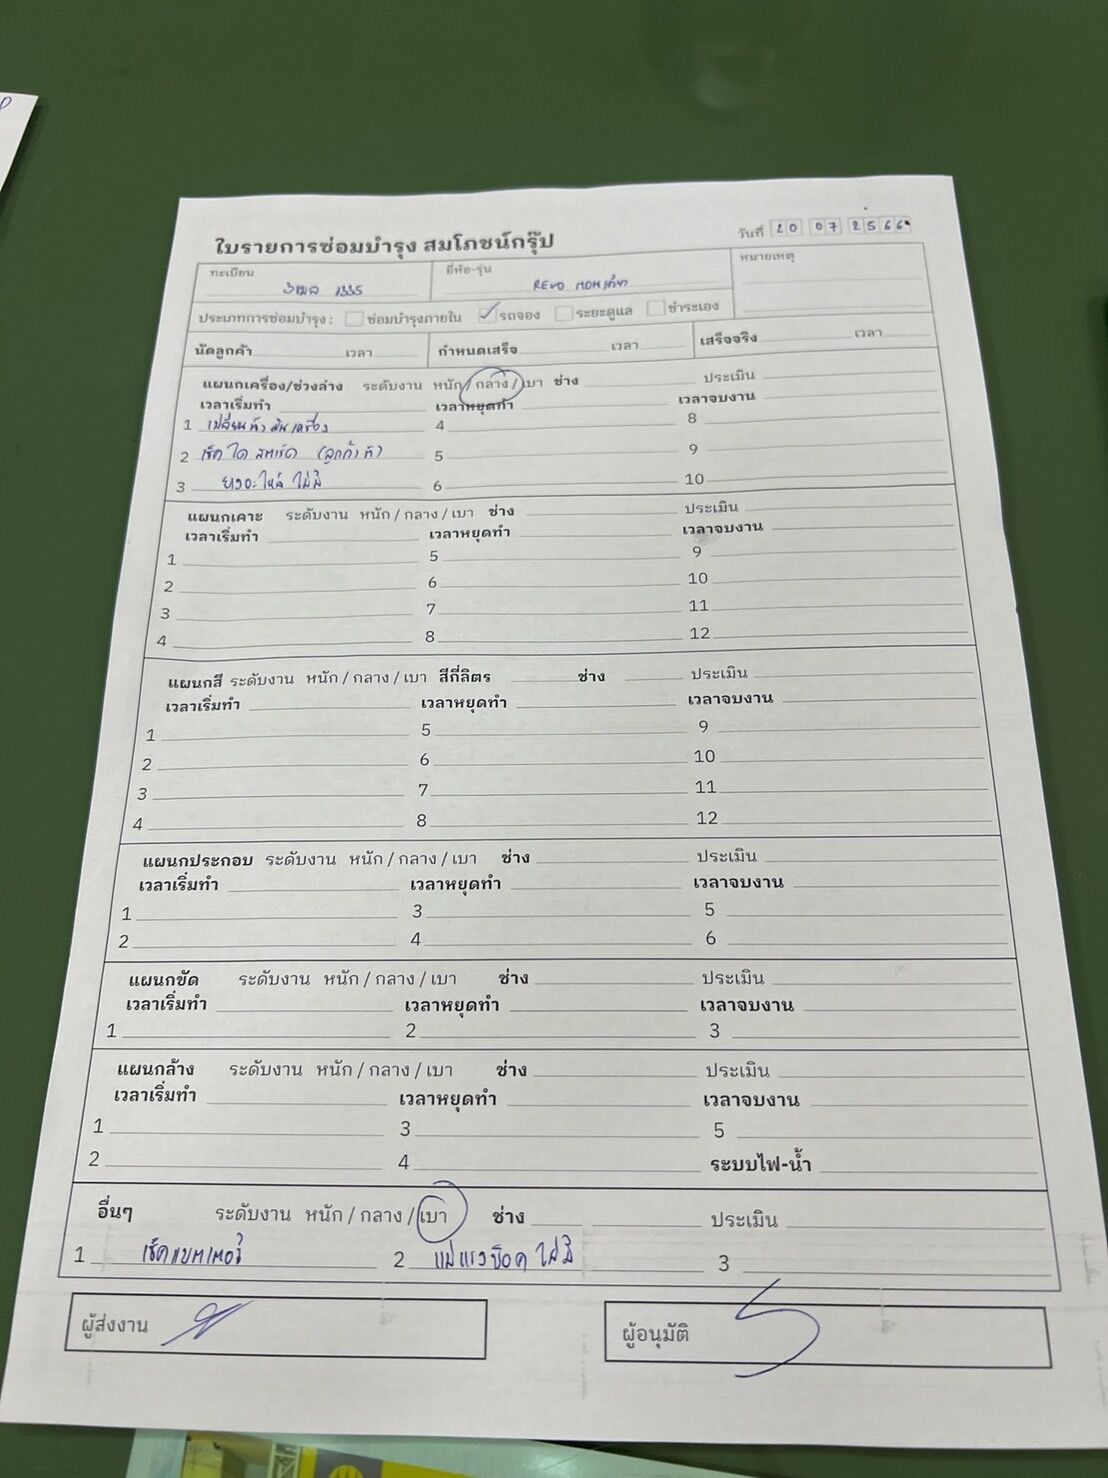 ใบรายการซ่อมบำรุง สมโภชน์กรุ๊ป
วันที่ 20 07 2566
ทะเบียน 1335 ยี่ห้อ-รุ่น REVO หมายเหตุ
ประเภทการซ่อมบำรุง : ซ่อมบำรุงภายใน รถจอง ระยะดูแล ชำระเอง
นัดลูกค้า เวลา กำหนดเสร็จ เวลา เสร็จจริง เวลา
แผนกเครื่อง/ช่วงล่าง ระดับงาน หนัก / กลาง / เบา ช่าง ประเมิน
เวลาเริ่มทำ เวลาหยุดทำ เวลาจบงาน
1 เปลี่ยนน้ำมันเครื่อง 4 8
2 เช็คไดสตาร์ด (ลูกค้า 5 9
3 ยางอะไหล่ ไม่มี 6 10
แผนกเคาะ ระดับงาน หนัก / กลาง / เบา ช่าง ประเมิน
เวลาเริ่มทำ เวลาหยุดทำ เวลาจบงาน
1 5 9
2 6 10
3 7 11
4 8 12
แผนกสี ระดับงาน หนัก / กลาง / เบา สีกี่ลิตร ช่าง ประเมิน
เวลาเริ่มทำ เวลาหยุดทำ เวลาจบงาน
1 5 9
2 6 10
3 7 11
4 8 12
แผนกประกอบ ระดับงาน หนัก / กลาง / เบา ช่าง ประเมิน
เวลาเริ่มทำ เวลาหยุดทำ เวลาจบงาน
1 3 5
2 4 6
แผนกขัด ระดับงาน หนัก / กลาง / เบา ช่าง ประเมิน
เวลาเริ่มทำ เวลาหยุดทำ เวลาจบงาน
1 2 3
แผนกล้าง ระดับงาน หนัก / กลาง / เบา ช่าง ประเมิน
เวลาเริ่มทำ เวลาหยุดทำ เวลาจบงาน
1 3 5
2 4 ระบบไฟ-น้ำ
อื่นๆ ระดับงาน หนัก / กลาง / เบา ช่าง ประเมิน
1 เช็คแบตเตอรี่ 2 แม่แรงบ๊อค ไม่มี 3
ผู้ส่งงาน ผู้อนุมัติ